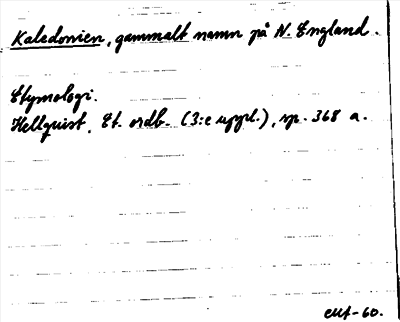 Kaledonien, gammalt namn på N. England.
Etymologi.
Hellquist, Et. ordb. (3:e uppl.), sp. 368 a.
EMT-60.